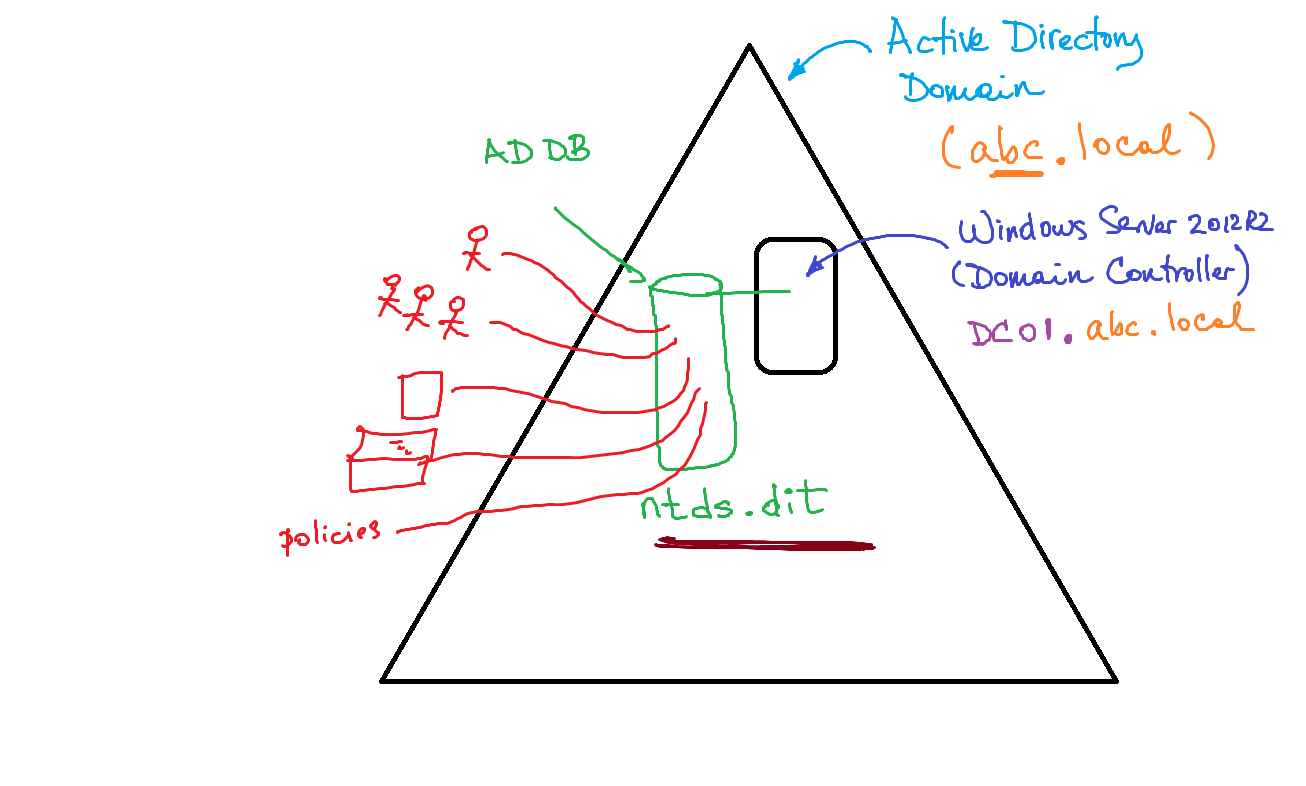 Active Directory
Domain
(abc.local)
AD DB
Windows Server 2012R2
(Domain Controller)
DC01.abc.local
ntds.dit
policies